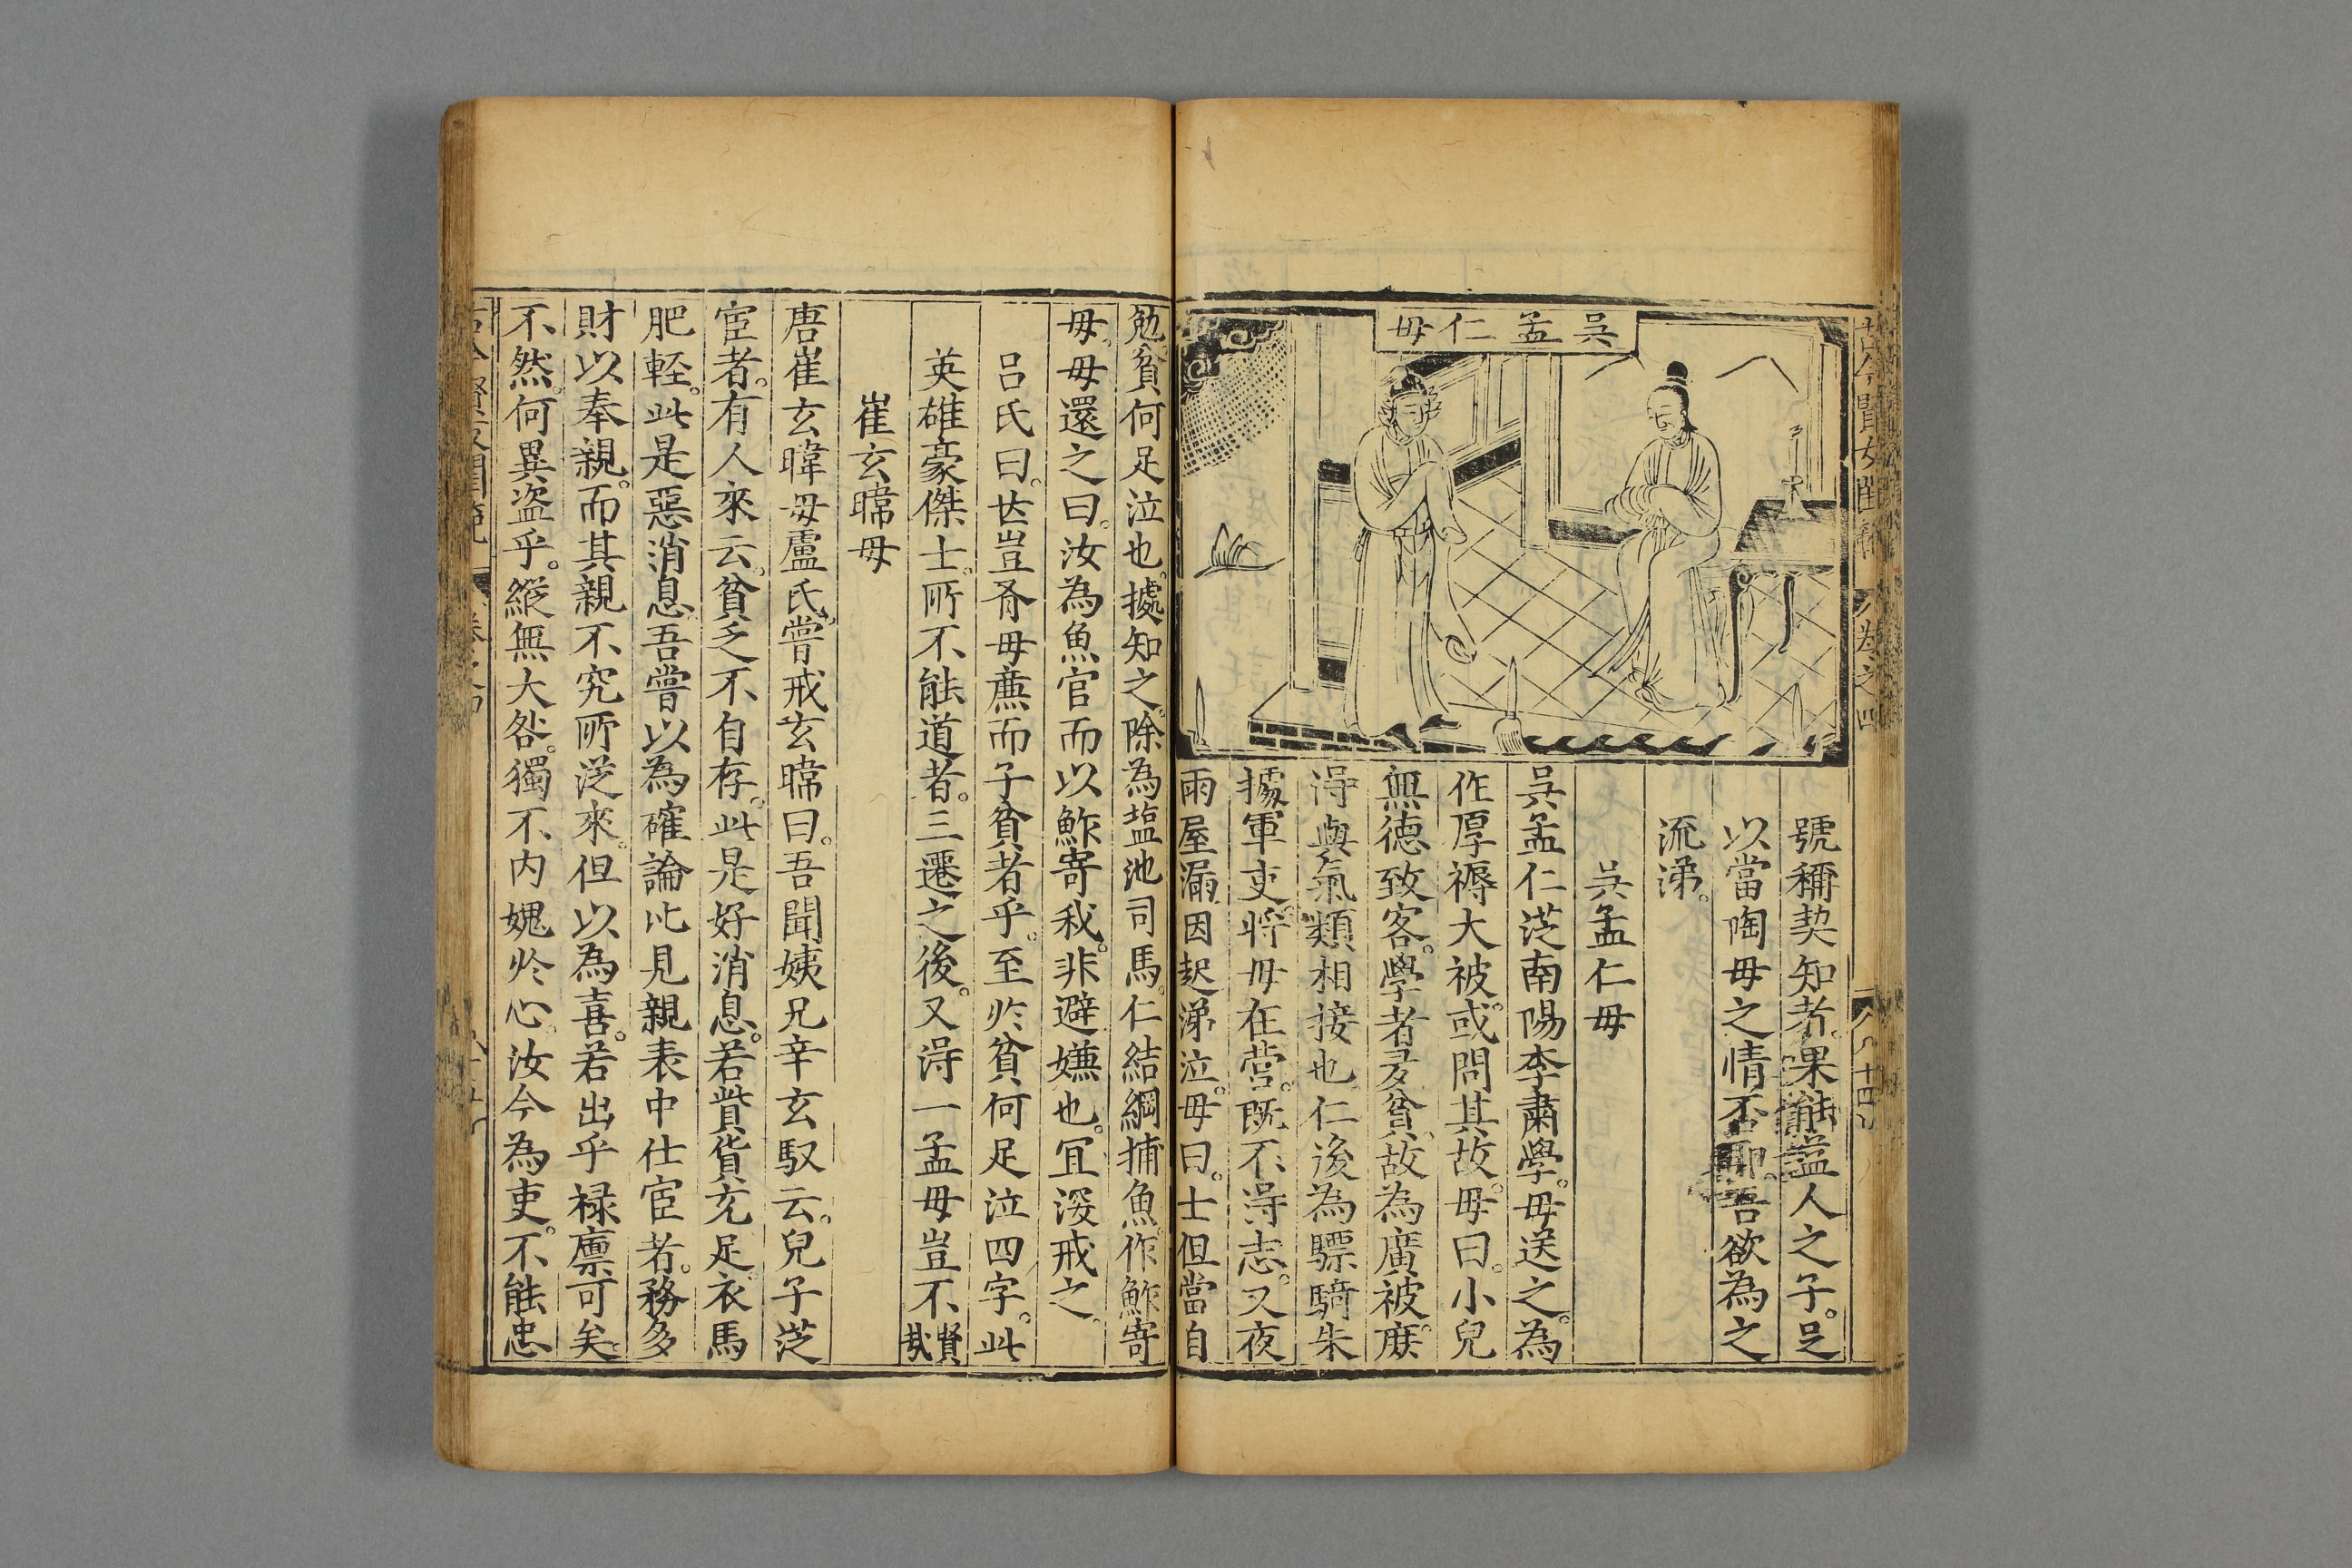 吳孟仁母
號稱契知者。果能益人之子。足
以當陶母之情否耶。吾欲為之
流涕。
吳孟仁母
吳孟仁從南陽李肅學。母送之。為
作厚褥大被。或問其故。母曰。小兒
無德致客。學者多貧。故為廣被。庶
得與氣類相接也。仁後為驃騎朱
據軍吏。將母在營。既不得志。又夜
雨屋漏。因起涕泣。母曰。士但當自
勉。貧何足泣也。據知之。除為塩池司馬。仁結綱捕魚。作鮓寄
母。母還之曰。汝為魚官而以鮓寄我。非避嫌也。冝深戒之。
呂氏曰。世豈有母薦而子貧者乎。至於貧何足泣四字。此
英雄豪傑士。所不能道者。三遷之後。又得一孟母豈不賢哉
崔玄暐母
唐崔玄暐母盧氏。嘗戒玄暐曰。吾聞姨兄辛玄馭云。兒子從
宦者。有人來云。貧乏不自存。此是好消息。若貲貨充足。衣馬
肥輕。此是惡消息。吾嘗以為確論。比見親表中仕宦者。務多
財以奉親。而其親不究所從來。但以為喜。若出乎禄廩可矣。
不然。何異盗乎。縱無大咎。獨不内媿於心。汝今為吏。不能忠
古今賢女閨範
卷之四
十四